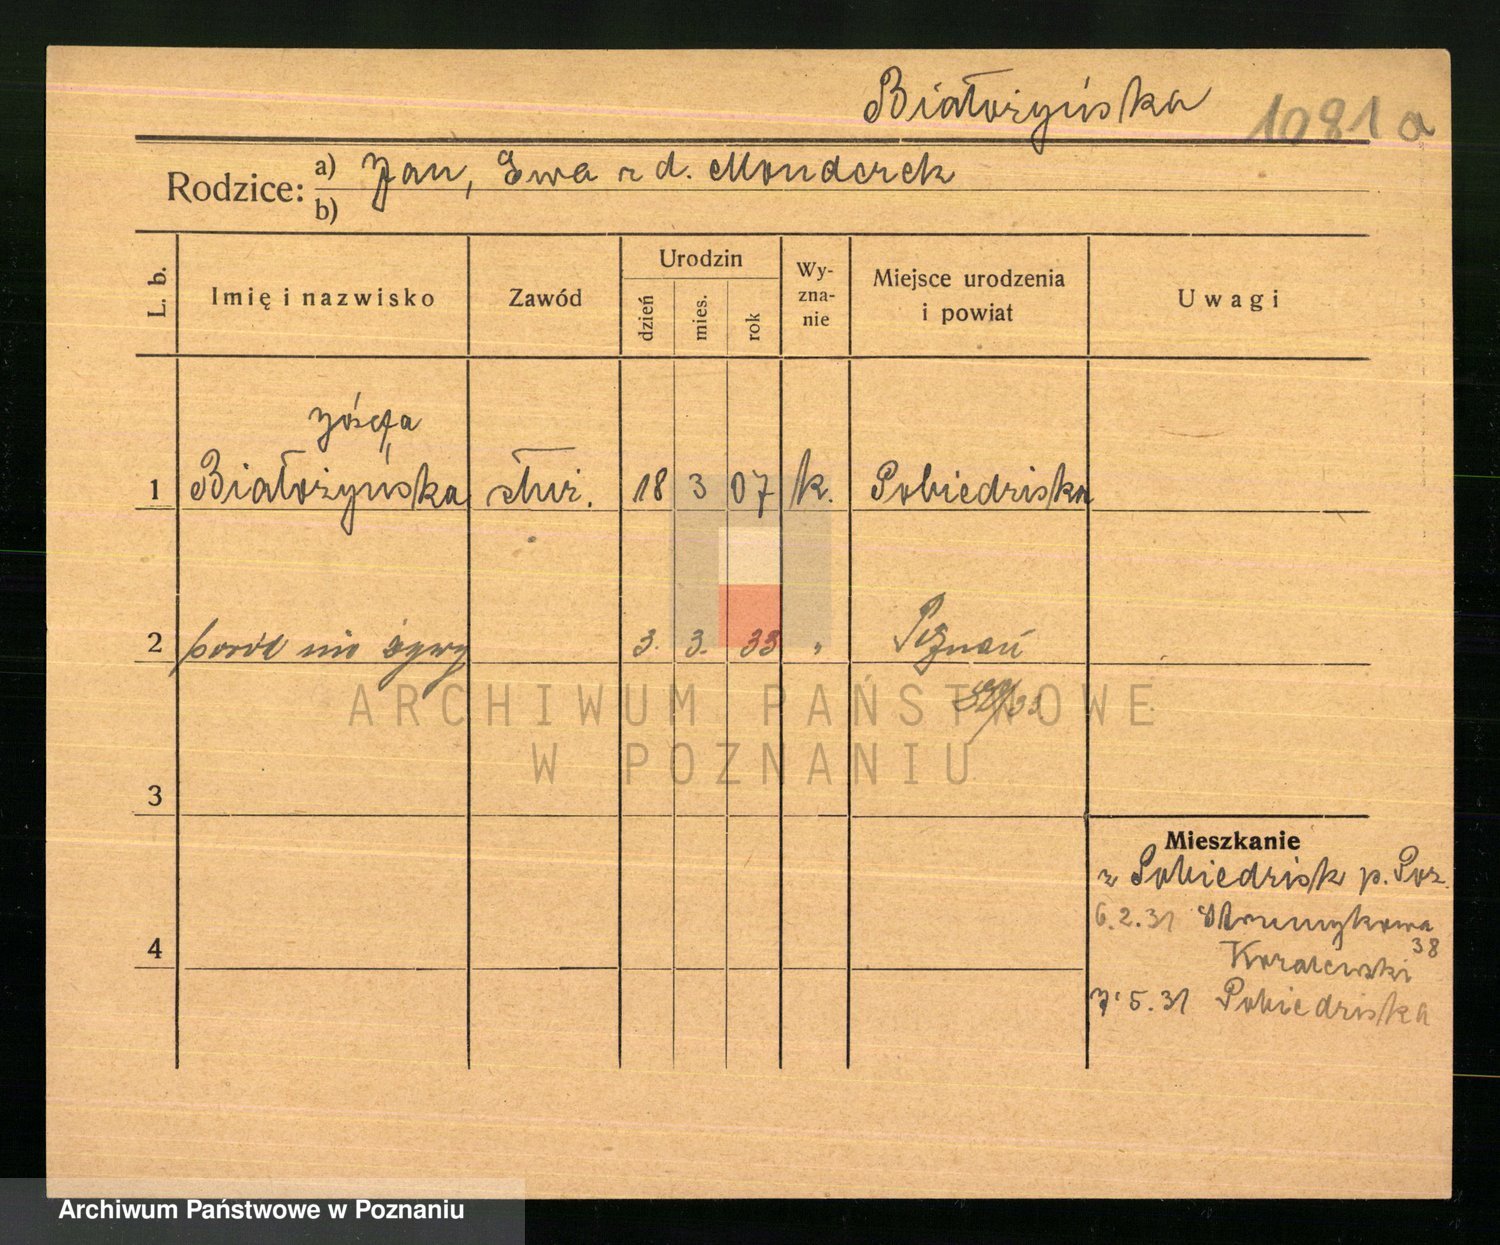 Białożyńska 1081 a
Rodzice: a) Jan, Ewa z d. Monderek
b)
L. b.
Imię i nazwisko
Zawód
Urodzin
dzień
mies.
rok
Wy-
zna-
nie
Miejsce urodzenia
i powiat
Uwagi
Józefa
1 Białożyńska służ. 18 3 07 k. Pobiedziska
2 poród nie żywy 3. 3. 33 " Poznań
/33
3
4
Mieszkanie
z Pobiedzisk p. Poz.
6.2.31 Strumykowa
38
7.5.31 Pobiedziska
ARCHIWUM PAŃSTWOWE
W POZNANIU
Archiwum Państwowe w Poznaniu